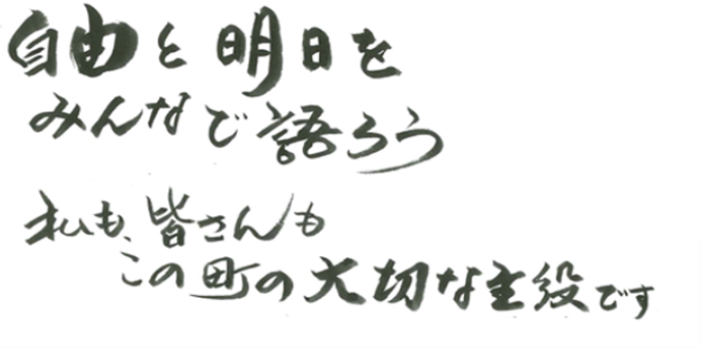 自由と明日を
みんなで語ろう
私も、皆さんも
この町の大切な主役です